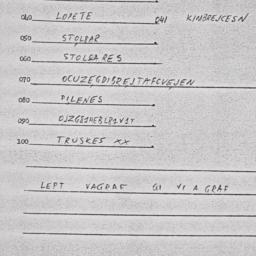 040 LOPETE 041 KINBREJCESN
050 STOLPAR
060 STOLSARES
070 OCUZEGDIBREJTAFCVEJEN
080 PILENES
090
100 TRUSKES XX
LEPT VAGRAF GI VI A GRAF